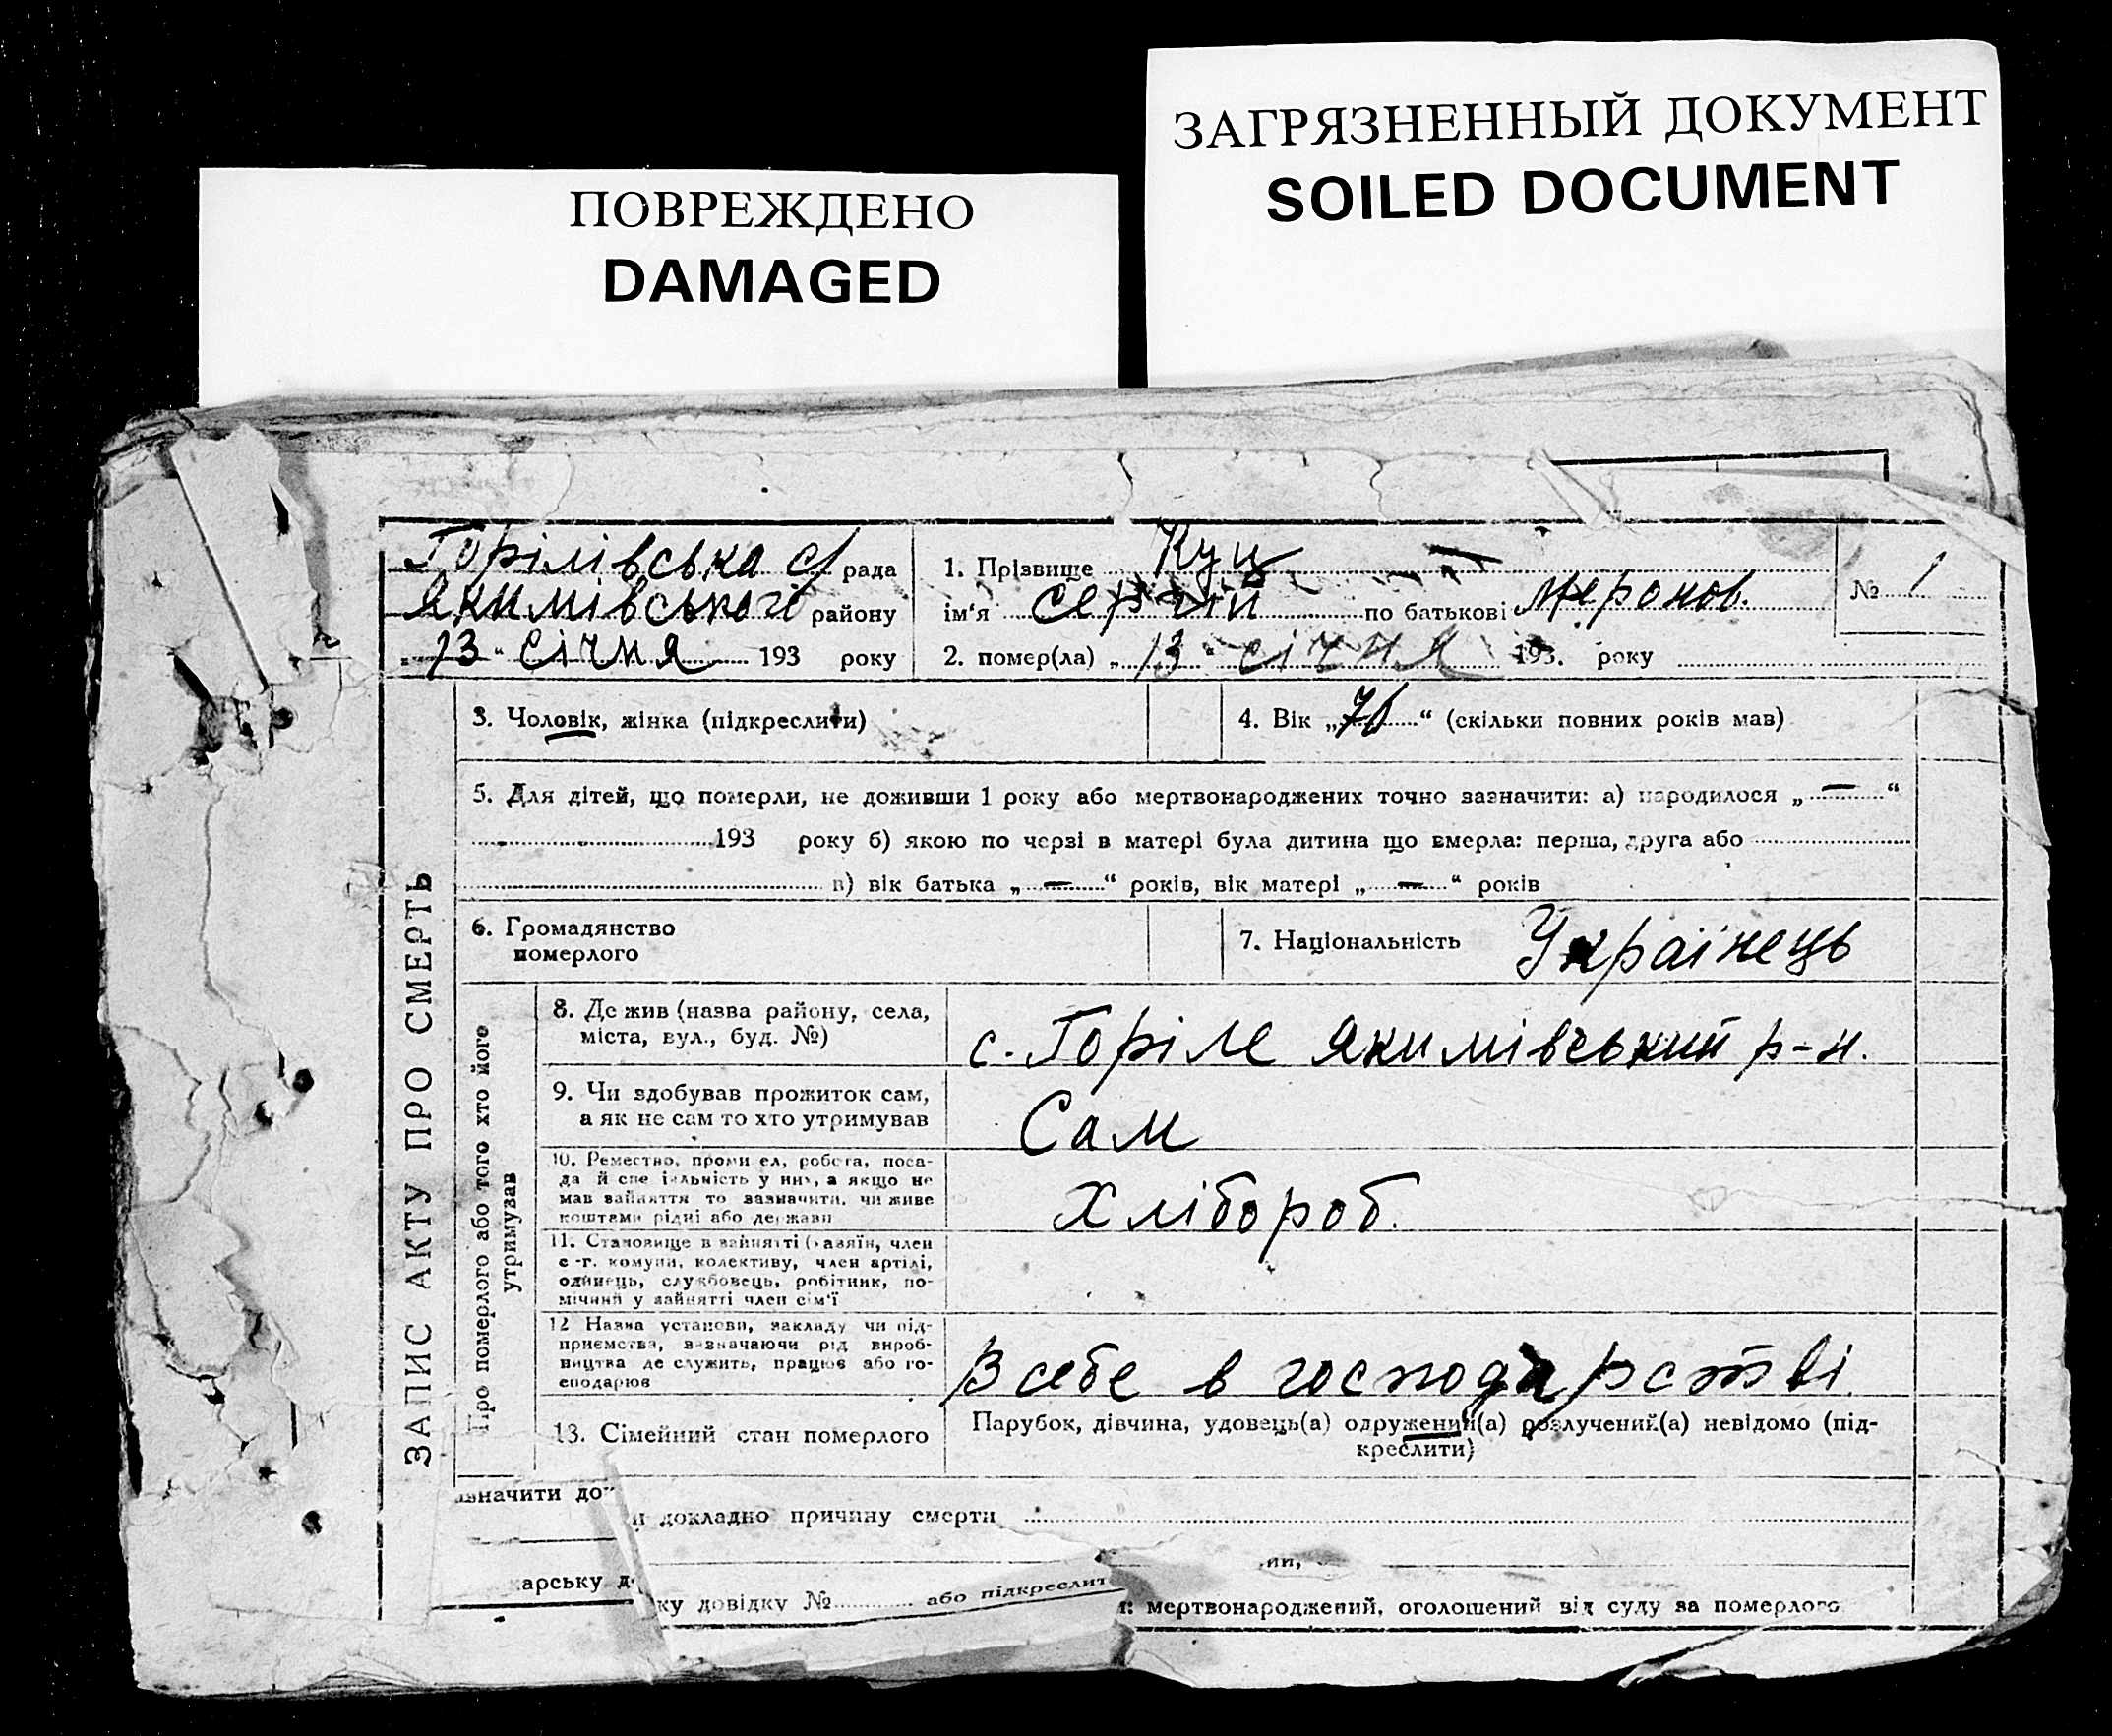 ЗАГРЯЗНЕННЫЙ ДОКУМЕНТ
SOILED DOCUMENT
ПОВРЕЖДЕНО
DAMAGED
Горілівська с/рада
Якимівського району
„13“ січня 193 року
1. Прізвище Куц
ім‘я Сергій по батькові
2. помер(ла) „13“ січня 193. року
№ 1
ЗАПИС АКТУ ПРО СМЕРТЬ
3. Чоловік, жінка (підкреслити)
4. Вік „ “ (скільки повних років мав)
5. Для дітей, що померли, не доживши 1 року або мертвонароджених точно зазначити: а) народилося „—“
193 року б) якою по черзі в матері була дитина що вмерла: перша, друга або
в) вік батька „—“ років, вік матері „—“ років
6. Громадянство
померлого
7. Національність Українець
Про померлого або того хто його
утримував
8. Де жив (назва району, села,
міста, вул., буд. №)
с. Горіле Якимівський р-н.
9. Чи здобував прожиток сам,
а як не сам то хто утримував
Сам
10. Ремество, промисел, робота, поса-
да й спеціальність у них, а якщо не
мав зайняття то зазначити, чи живе
коштами рідні або держави
Хлібороб.
11. Становище в зайнятті (хазяїн, член
с.-г. комуни, колективу, член артілі,
одинець, службовець, робітник, по-
мічний у зайнятті член сім'ї
12 Назва установи, закладу чи під-
приємства, зазначаючи рід вироб-
ництва де служить, працює або го-
сподарює
В себе в господарстві.
13. Сімейний стан померлого
Парубок, дівчина, удовець(а) одружений(а) розлучений(а) невідомо (під-
креслити)
докладно причину смерти
довідку № або підкреслит
мертвонароджений, оголошений від суду за померлого